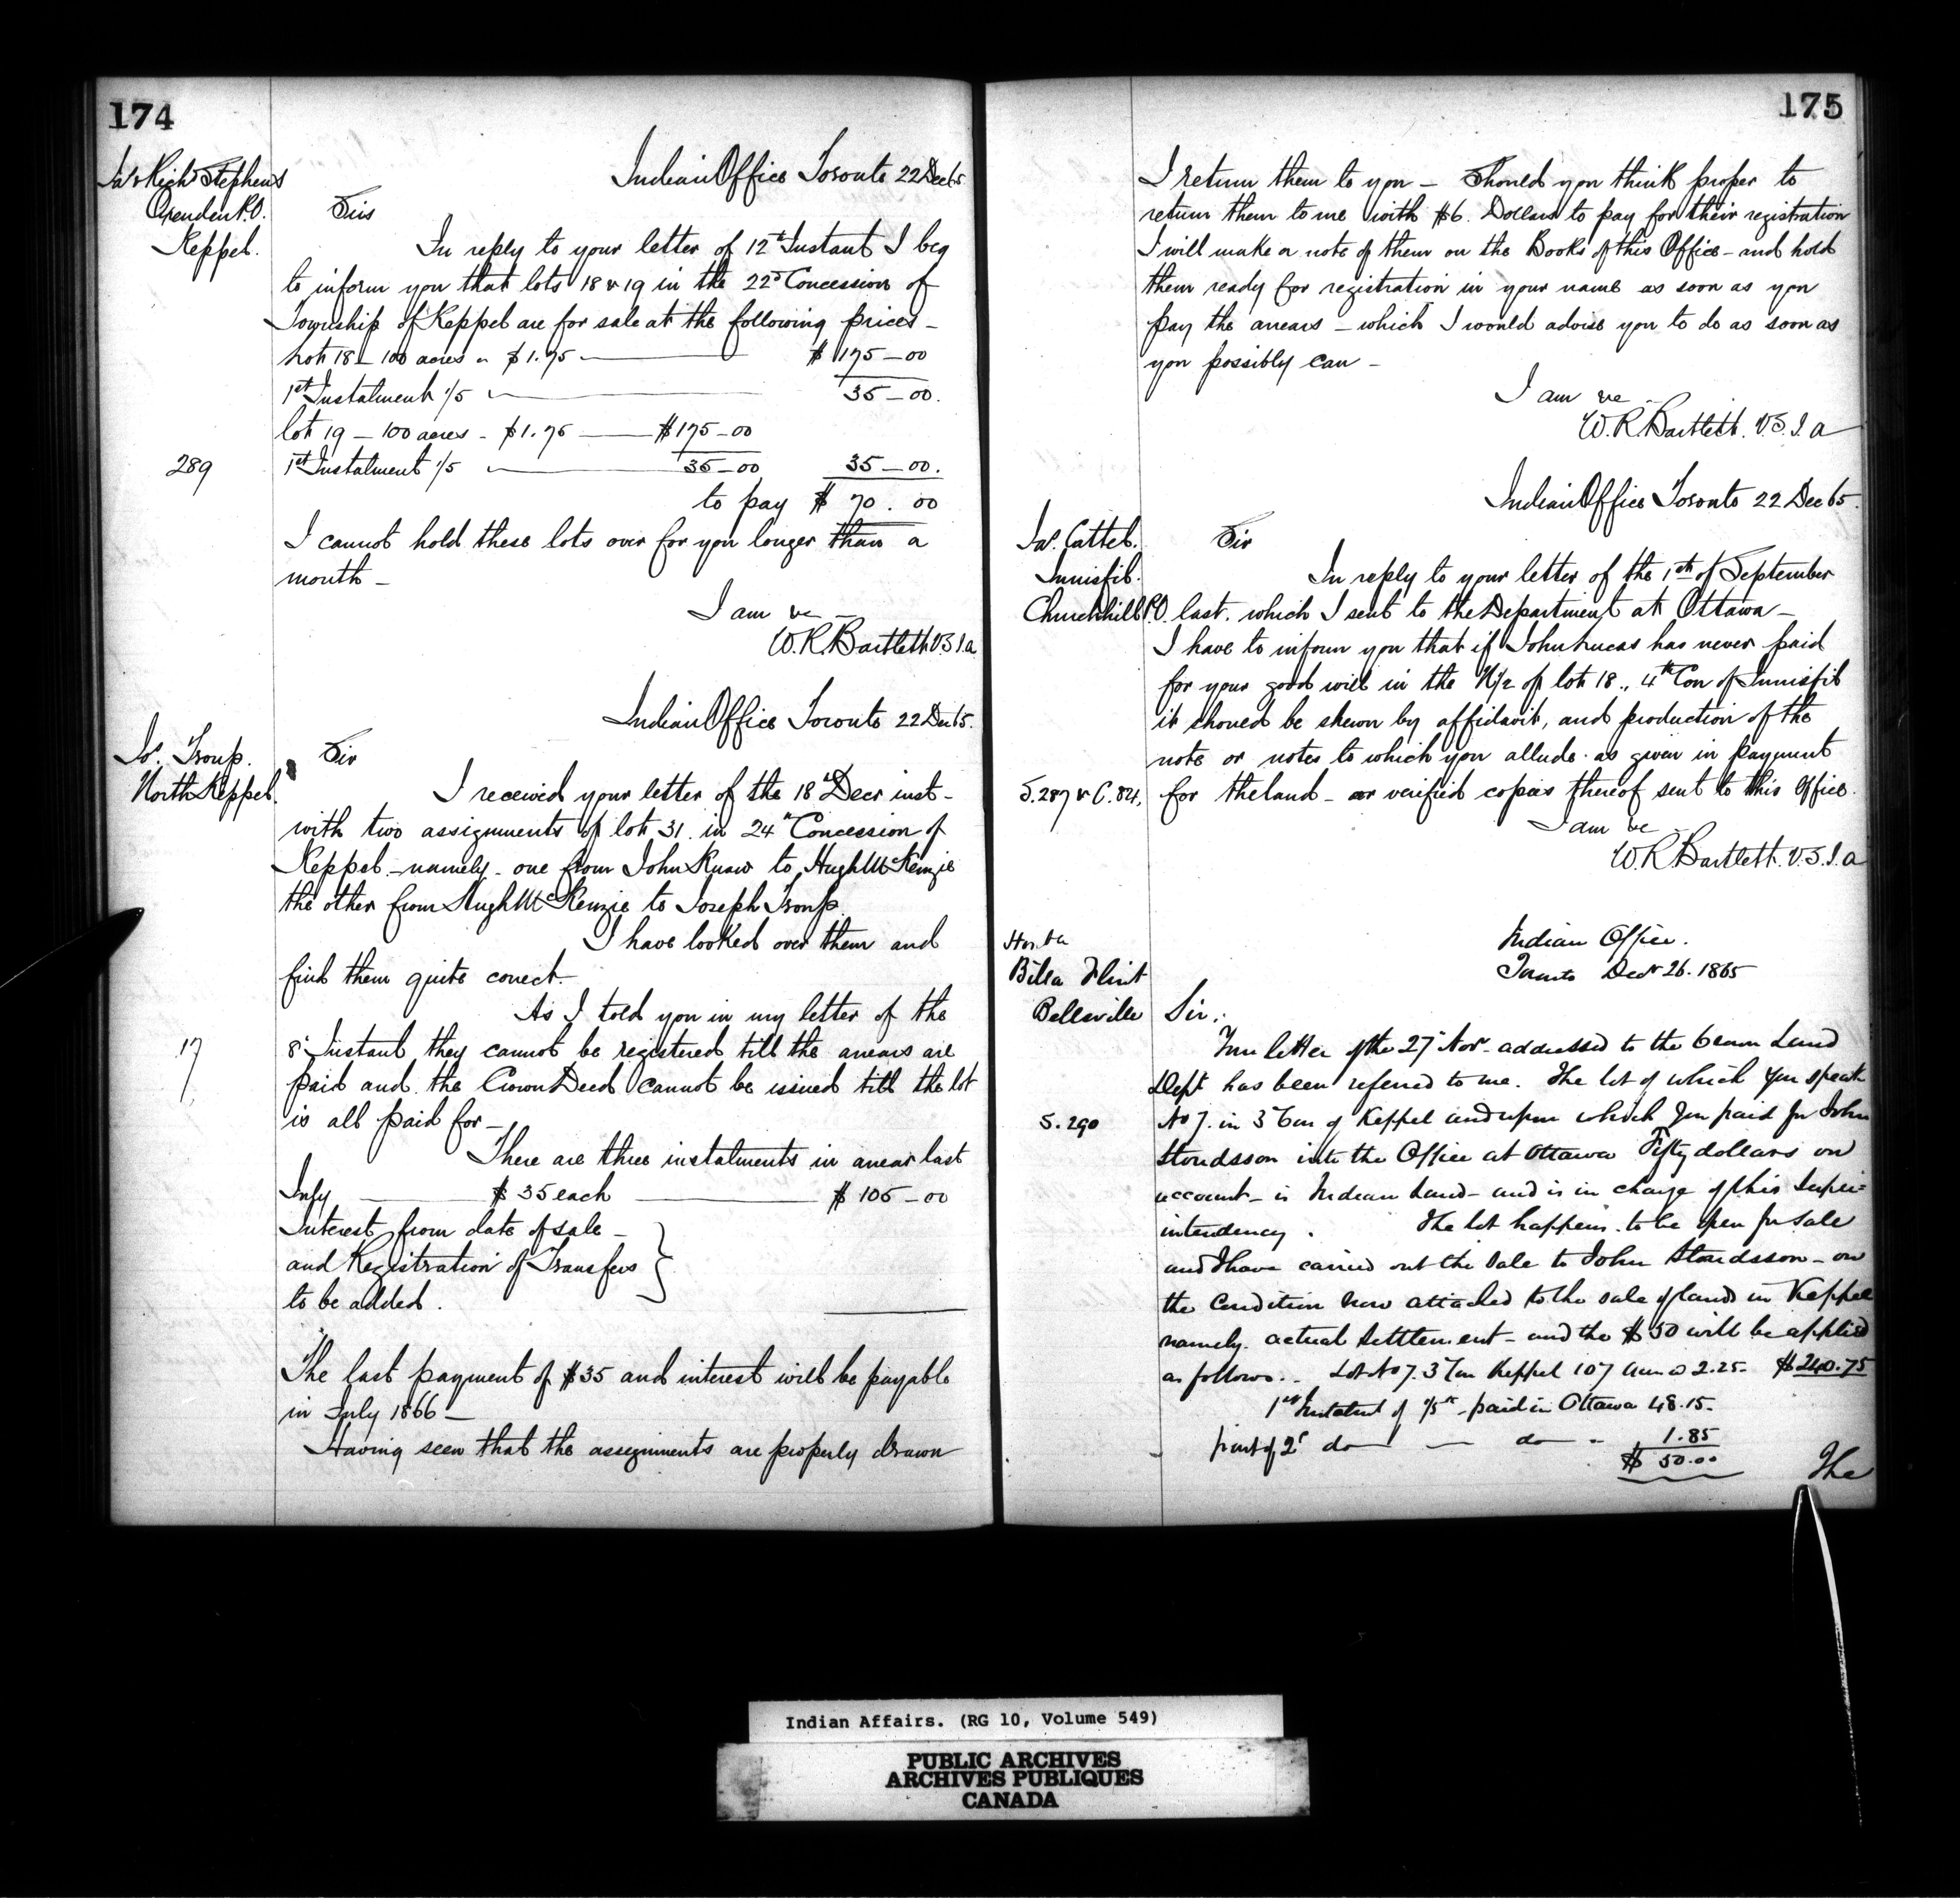 174
Jas & Richd Stephens
Oxenden P.O.
Keppel.
Indian Office Toronto 22 Dec 65
Sirs
In reply to your letter of 12th Instant I beg
to inform you that lots 18 & 19 in the 22d Concession of
Township of Keppel are for sale at the following prices –
Lot 18 – 100 acres - $1.75 — $175–00
1st Instalment 1/5 — 35–00.
lot 19 – 100 acres - $1.75 — $175–00
289
1st Instalment 1/5 — 35–00 35–00.
to pay $70.00
I cannot hold these lots over for you longer than a
month –
I am &c –
W.R. Bartlett V.S.I.a
Indian Office Toronto 22 Dec 65.
Jos. Troup.
North Keppel.
Sir
I received your letter of the 18th Decr inst –
with two assignments of lot 31. in 24th Concession of
Keppel – namely – one from John Knaw to Hugh McKenzie
the other from Hugh McKenzie to Joseph Troup.
I have looked over them and
find them quite correct.
As I told you in my letter of the
17
8th Instant they cannot be registered till the arrears are
paid and the Crown Deed cannot be issued till the lot
is all paid for –
There are three instalments in arrear last
July — $35 each — $105–00
Interest from date of sale –
and Registration of Transfers }
to be added.
The last payment of $35 and interest will be payable
in July 1866 –
Having seen that the assignments are properly drawn
175
I return them to you – Should you think proper to
return them to me with $6. Dollars to pay for their registration
I will make a note of them on the Books of this Office – and hold
them ready for registration in your name as soon as you
pay the arrears – which I would advise you to do as soon as
you possibly can –
I am &c –
W.R. Bartlett. V.S.I.a
Indian Office Toronto 22 Dec 65.
Jas. Cattel.
Innisfil.
Churchhill P.O.
Sir
In reply to your letter of the 1st of September
last. which I sent to the Department at Ottawa –
I have to inform you that if John Lucas has never paid
for your good will in the N 1/2 of lot 18., 4th Con of Innisfil
it should be shewn by affidavit, and production of the
note or notes to which you allude. as given in payment
S. 287 & C. 84.
for the land – or verified copies thereof sent to this Office.
I am &c
W.R. Bartlett. V.S.I.a
Honble
Billa Flint
Belleville
Indian Office.
Toronto Decr 26. 1865
Sir.
Your letter of the 27 Novr addressed to the Crown Land
Dept has been referred to me. The lot of which you speak
S. 290
No 7. in 3 Con of Keppel and upon which you paid for John
Stoudsson into the Office at Ottawa Fifty dollars on
account – is Indian Land – and is in charge of this Super=
intendency. The lot happens to be open for sale
and I have carried out the sale to John Stoudsson – on
the condition now attached to the sale of lands in Keppel
namely. actual settlement – and the $50 will be applied
as follows.. Lot No 7. 3 Con Keppel 107 acres @ 2.25– $240.75
1st Instalmt of 1/5th – paid in Ottawa 48.15–
part of 2d do — do – 1.85
$50.00
The
Indian Affairs. (RG 10, Volume 549)
PUBLIC ARCHIVES
ARCHIVES PUBLIQUES
CANADA